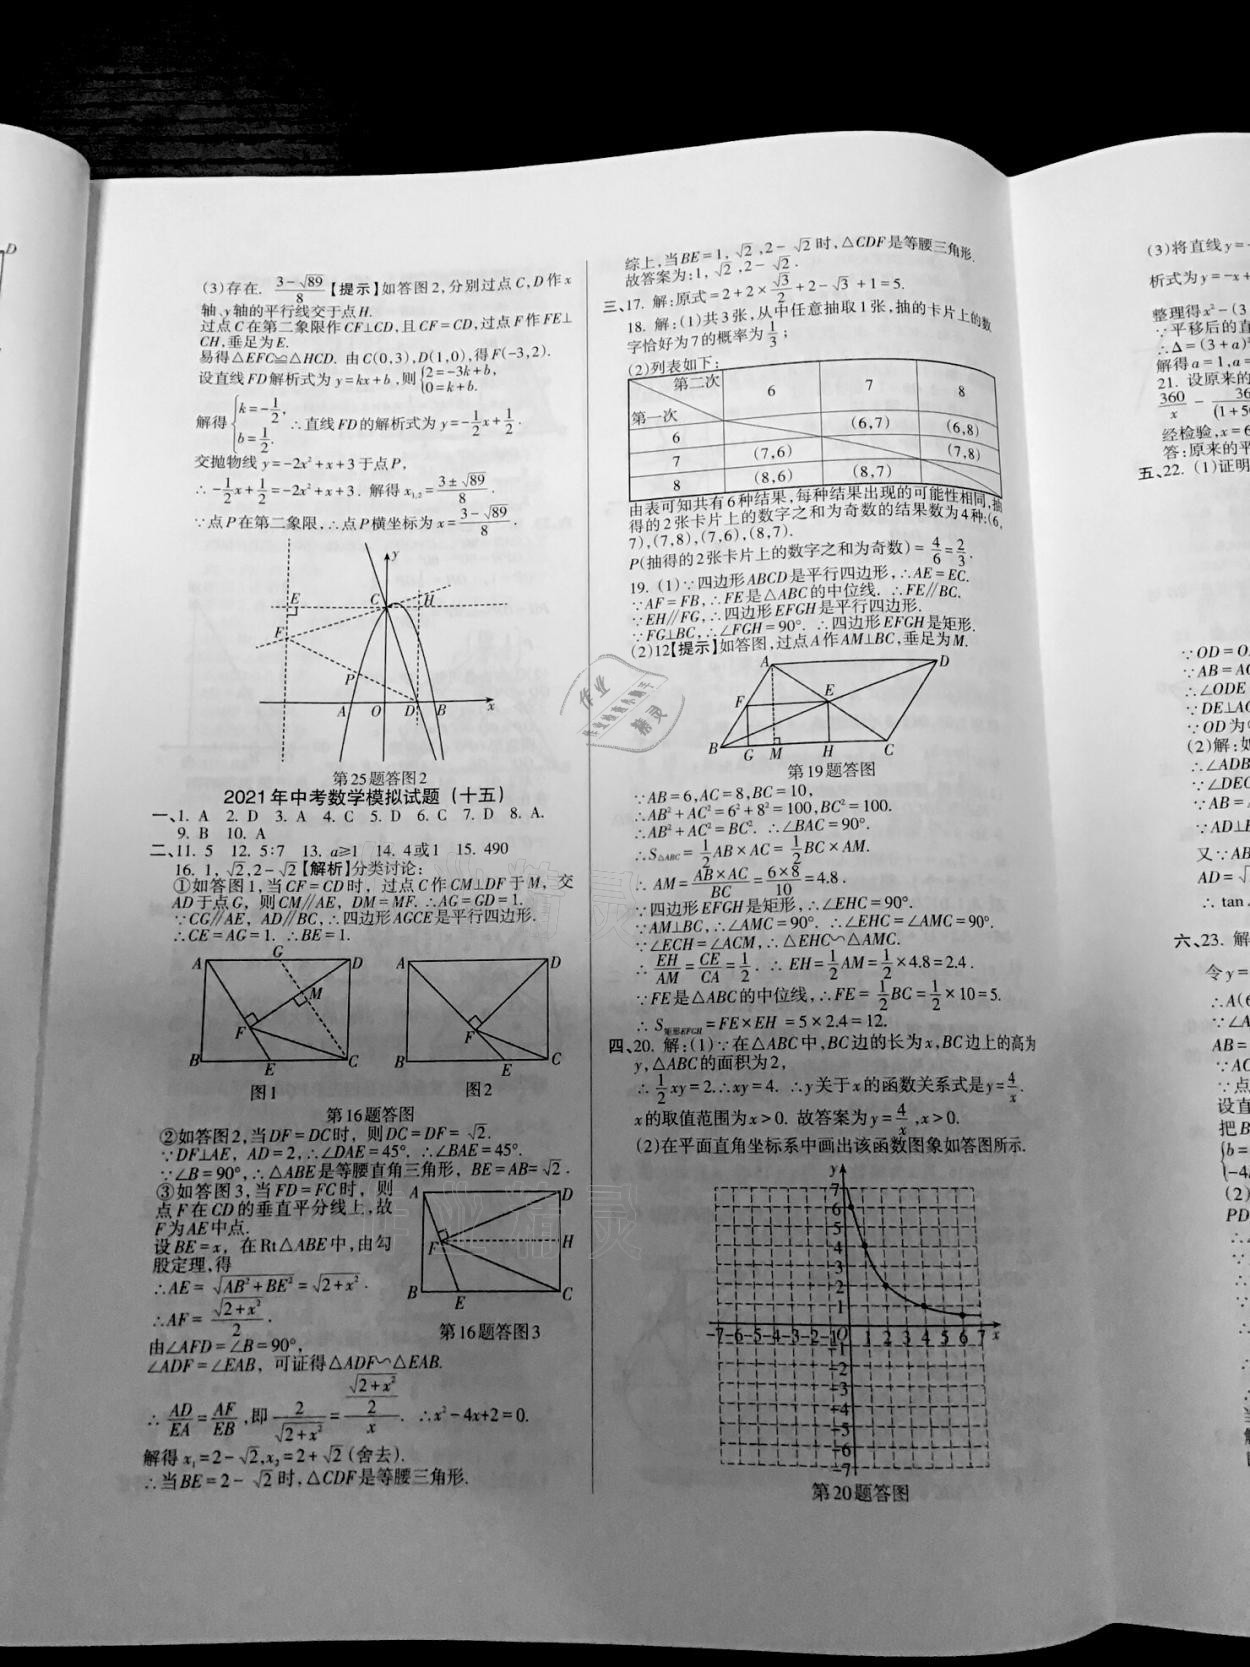 (3)存在. (3-√89)/8【提示】如答图2,分别过点C,D作x
轴、y轴的平行线交于点H.
过点C在第二象限作CF⊥CD,且CF=CD,过点F作FE⊥
CH,垂足为E.
易得△EFC≌△HCD. 由C(0,3),D(1,0),得F(-3,2).
设直线FD解析式为y=kx+b,则{2=-3k+b, 0=k+b.
解得{k=-1/2, b=1/2. ∴直线FD的解析式为y=-1/2x+1/2.
交抛物线y=-2x²+x+3于点P,
∴-1/2x+1/2=-2x²+x+3. 解得x₁,₂=(3±√89)/8.
∵点P在第二象限,∴点P横坐标为x=(3-√89)/8.
y
E C H
F
P
A O D B x
第25题答图2
2021年中考数学模拟试题(十五)
一、1. A 2. D 3. A 4. C 5. D 6. C 7. D 8. A.
9. B 10. A
二、11. 5 12. 5:7 13. a≥1 14. 4或1 15. 490
16. 1,√2,2-√2【解析】分类讨论:
①如答图1,当CF=CD时, 过点C作CM⊥DF于M, 交
AD于点G, 则CM∥AE, DM=MF. ∴AG=GD=1.
∵CG∥AE, AD∥BC,∴四边形AGCE是平行四边形.
∴CE=AG=1. ∴BE=1.
A G D
M
F
B E C
图1
A D
F
B E C
图2
第16题答图
②如答图2,当DF=DC时, 则DC=DF=√2.
∵DF⊥AE, AD=2,∴∠DAE=45°. ∴∠BAE=45°.
∵∠B=90°,∴△ABE是等腰直角三角形, BE=AB=√2.
③如答图3,当FD=FC时, 则
点F在CD的垂直平分线上,故
F为AE中点.
设BE=x, 在Rt△ABE中,由勾
股定理,得
∴AE=√(AB²+BE²)=√(2+x²).
∴AF=√(2+x²)/2.
A D
F H
B E C
第16题答图3
由∠AFD=∠B=90°,
∠ADF=∠EAB, 可证得△ADF∽△EAB.
∴AD/EA=AF/EB,即2/√(2+x²)=(√(2+x²)/2)/x. ∴x²-4x+2=0.
解得x₁=2-√2,x₂=2+√2(舍去).
∴当BE=2-√2时,△CDF是等腰三角形.
综上,当BE=1,√2,2-√2时,△CDF是等腰三角形.
故答案为:1,√2,2-√2.
三、17. 解:原式=2+2×√3/2+2-√3+1=5.
18. 解:(1)共3张,从中任意抽取1张,抽的卡片上的数
字恰好为7的概率为1/3;
(2)列表如下:
第二次 6 7 8
第一次
6 (6,7) (6,8)
7 (7,6) (7,8)
8 (8,6) (8,7)
由表可知共有6种结果,每种结果出现的可能性相同,抽
得的2张卡片上的数字之和为奇数的结果数为4种:(6,
7),(7,8),(7,6),(8,7).
P(抽得的2张卡片上的数字之和为奇数)=4/6=2/3.
19. (1)∵四边形ABCD是平行四边形,∴AE=EC.
∵AF=FB,∴FE是△ABC的中位线. ∴FE∥BC.
∵EH∥FG,∴四边形EFGH是平行四边形.
∵FG⊥BC,∴∠FGH=90°. ∴四边形EFGH是矩形.
(2)12【提示】如答图,过点A作AM⊥BC,垂足为M.
A D
F E
B G M H C
第19题答图
∵AB=6,AC=8,BC=10,
∴AB²+AC²=6²+8²=100,BC²=100.
∴AB²+AC²=BC². ∴∠BAC=90°.
∴S△ABC=1/2AB×AC=1/2BC×AM.
∴AM=AB×AC/BC=6×8/10=4.8.
∵四边形EFGH是矩形,∴∠EHC=90°.
∵AM⊥BC,∴∠AMC=90°. ∴∠EHC=∠AMC=90°.
∵∠ECH=∠ACM,∴△EHC∽△AMC.
∴EH/AM=CE/CA=1/2. ∴EH=1/2AM=1/2×4.8=2.4.
∵FE是△ABC的中位线,∴FE=1/2BC=1/2×10=5.
∴S矩形EFGH=FE×EH=5×2.4=12.
四、20. 解:(1)∵在△ABC中,BC边的长为x,BC边上的高为
y,△ABC的面积为2,
∴1/2xy=2.∴xy=4. ∴y关于x的函数关系式是y=4/x.
x的取值范围为x>0. 故答案为y=4/x,x>0.
(2)在平面直角坐标系中画出该函数图象如答图所示.
y
7
6
5
4
3
2
1
-7-6-5-4-3-2-1 O 1 2 3 4 5 6 7 x
-1
-2
-3
-4
-5
-6
-7
第20题答图
D
(3)将直线y=-
析式为y=-x+
整理得x²-(3
∵平移后的直
∴Δ=(3+a)²
解得a=1,a=
21. 设原来的
经检验,x=6
答:原来的平
五、22. (1)证明
∵OD=O
∵AB=AC
∴∠ODE
∵DE⊥AC
∵OD为
(2)解:如
∴∠ADB
∵∠DEC
∵AB=A
∵AD⊥B
又∵AB
AD=√
∴tan
六、23. 解
令y=
∴A(6
∵∠A
AB=
∵AC
∵点
设直
把B
{b=
-4
(2)
PD